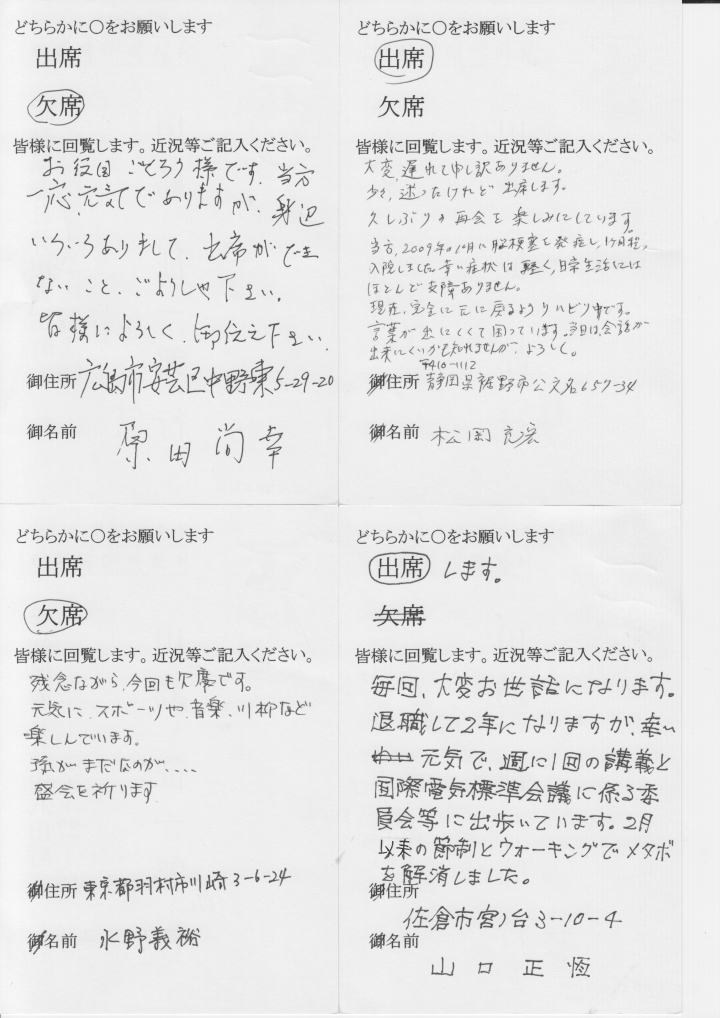 どちらかに〇をお願いします
出席
欠席
皆様に回覧します。近況等ご記入ください。
お役目ごくろう様です。当方
一応、元気でありますが、身辺
いろいろありまして、出席ができ
ないこと、ごようしゃ下さい。
皆様によろしく、御伝え下さい。
御住所 広島市安芸区中野東5-29-20
御名前 原田尚幸
どちらかに〇をお願いします
出席
欠席
皆様に回覧します。近況等ご記入ください。
大変、遅れて申し訳ありません。
少々、迷ったけれど出席します。
久しぶりの再会を楽しみにしています。
当方、2009年の10月に脳梗塞を発症し、1ヶ月程、
入院しました。幸い症状は軽く、日常生活には
ほとんど支障ありません。
現在、完全に元に戻るようリハビリ中です。
言葉が出にくくて困っています。当日は、会話が
出来にくいかも知れませんが、よろしく。
〒410-1112
御住所 静岡県裾野市公文名657-34
御名前 松岡
どちらかに〇をお願いします
出席
欠席
皆様に回覧します。近況等ご記入ください。
残念ながら、今回も欠席です。
元気に、スポーツや、音楽、川柳など
楽しんでいます。
孫がまだなのが、、、、
盛会を祈ります
御住所 東京都羽村市川崎3-6-24
御名前 水野義裕
どちらかに〇をお願いします
出席 します。
欠席
皆様に回覧します。近況等ご記入ください。
毎回、大変お世話になります。
退職して2年になりますが、幸い
元気で、週に1回の講義と
国際電気標準会議に係る委
員会等に出歩いています。2月
以来の節制とウォーキングでメタボ
を解消しました。
御住所
佐倉市宮ノ台3-10-4
御名前
山口正恆